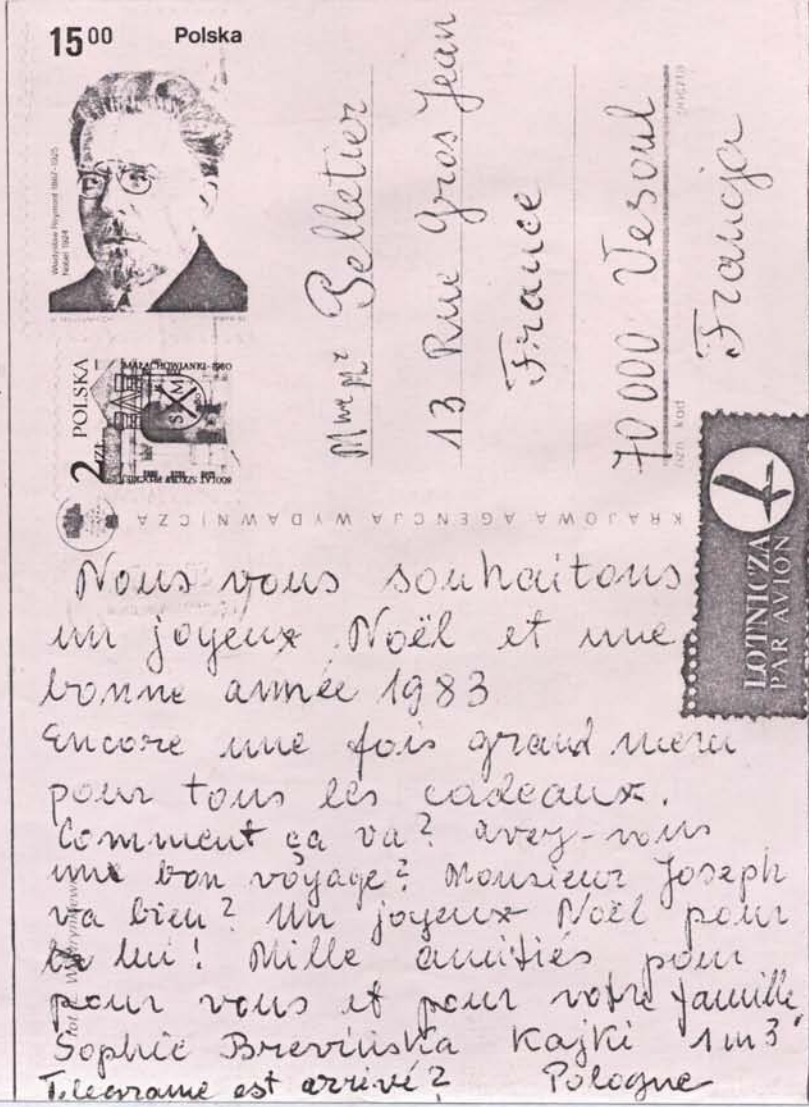 15 00 Polska
Władysław Reymont 1867-1925
Nobel 1924
POLSKA
2 ZŁ
MAŁACHOWIANKI-1980
Pelletier
13 Rue Gros Jean
France
70 000 Vesoul
Francja
poczta
ozn. kod
KRAJOWA AGENCJA WYDAWNICZA
LOTNICZA
PAR AVION
Nous vous souhaitons
un joyeux Noël et une
bonne année 1983
Encore une fois grand merci
pour tous les cadeaux.
Comment ça va? avez-vous
une bon voyage? Monsieur Joseph
va bien? Un joyeux Noël pour
lui! Mille amitiés pour
pour vous et pour votre famille,
Sophie Kajki 1 m 3
est arrivé? Pologne
fot.